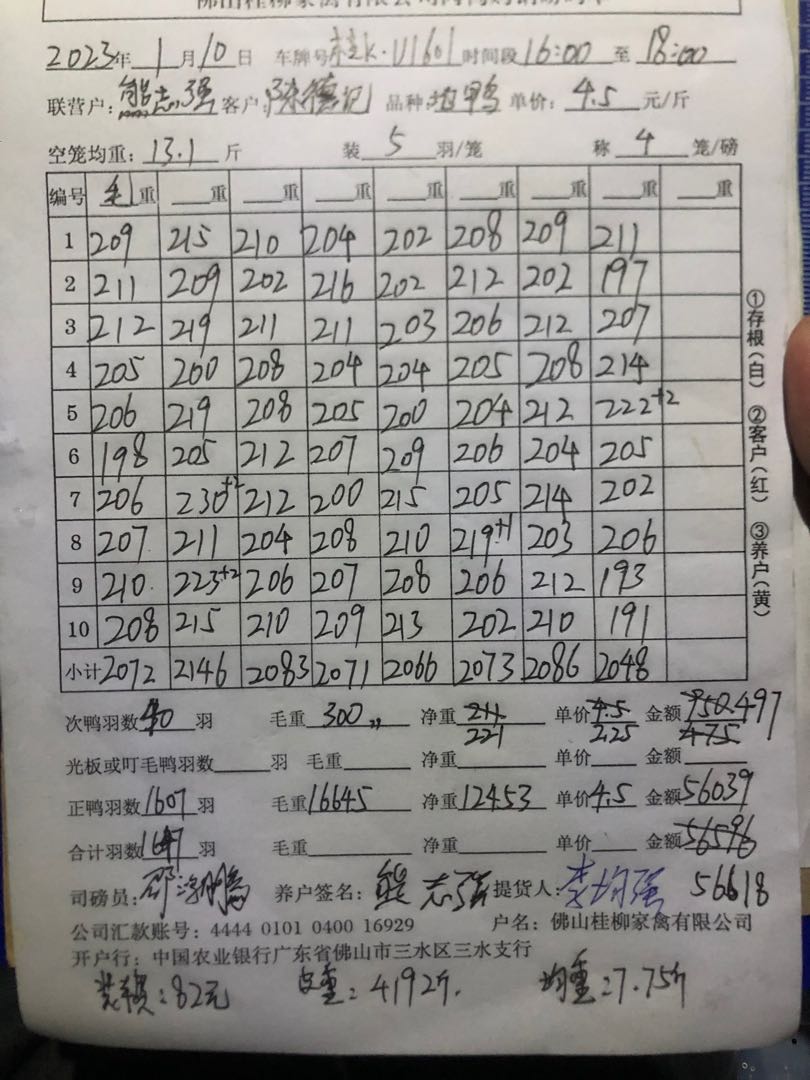 2023年 1月10日 车牌号桂K·U1601 时间段16:00 至 18:00
联营户：熊志强 客户：陈德记 品种： 单价：4.5 元/斤
空笼均重：13.1 斤 装 5 羽/笼 称 4 笼/磅
编号 毛重 重 重 重 重 重 重 重 重
1 209 215 210 204 202 208 209 211
2 211 209 202 216 202 212 202 197
3 212 219 211 211 203 206 212 207
4 205 200 208 204 204 205 208 214
5 206 219 208 205 200 204 212 222+2
6 198 205 212 207 209 206 204 205
7 206 230+2 212 200 215 205 214 202
8 207 211 204 208 210 219+1 203 206
9 210 223+2 206 207 208 206 212 193
10 208 215 210 209 213 202 210 191
小计 2072 2146 2083 2071 2066 2073 2086 2048
①存根（白） ②客户（红） ③养户（黄）
次鸭羽数 40 羽 毛重 300 净重 211 单价 4.5 金额 950 497
221 2.25 475
光板或叮毛鸭羽数 羽 毛重 净重 单价 金额
正鸭羽数1607羽 毛重16645 净重12453 单价4.5 金额56039
合计羽数1647羽 毛重 净重 单价 金额56596
司磅员： 养户签名：熊志强 提货人：李均强 56618
公司汇款账号：4444 0101 0400 16929 户名：佛山桂柳家禽有限公司
开户行：中国农业银行广东省佛山市三水区三水支行
装车费：82元 皮重：4192斤. 均重：7.75斤